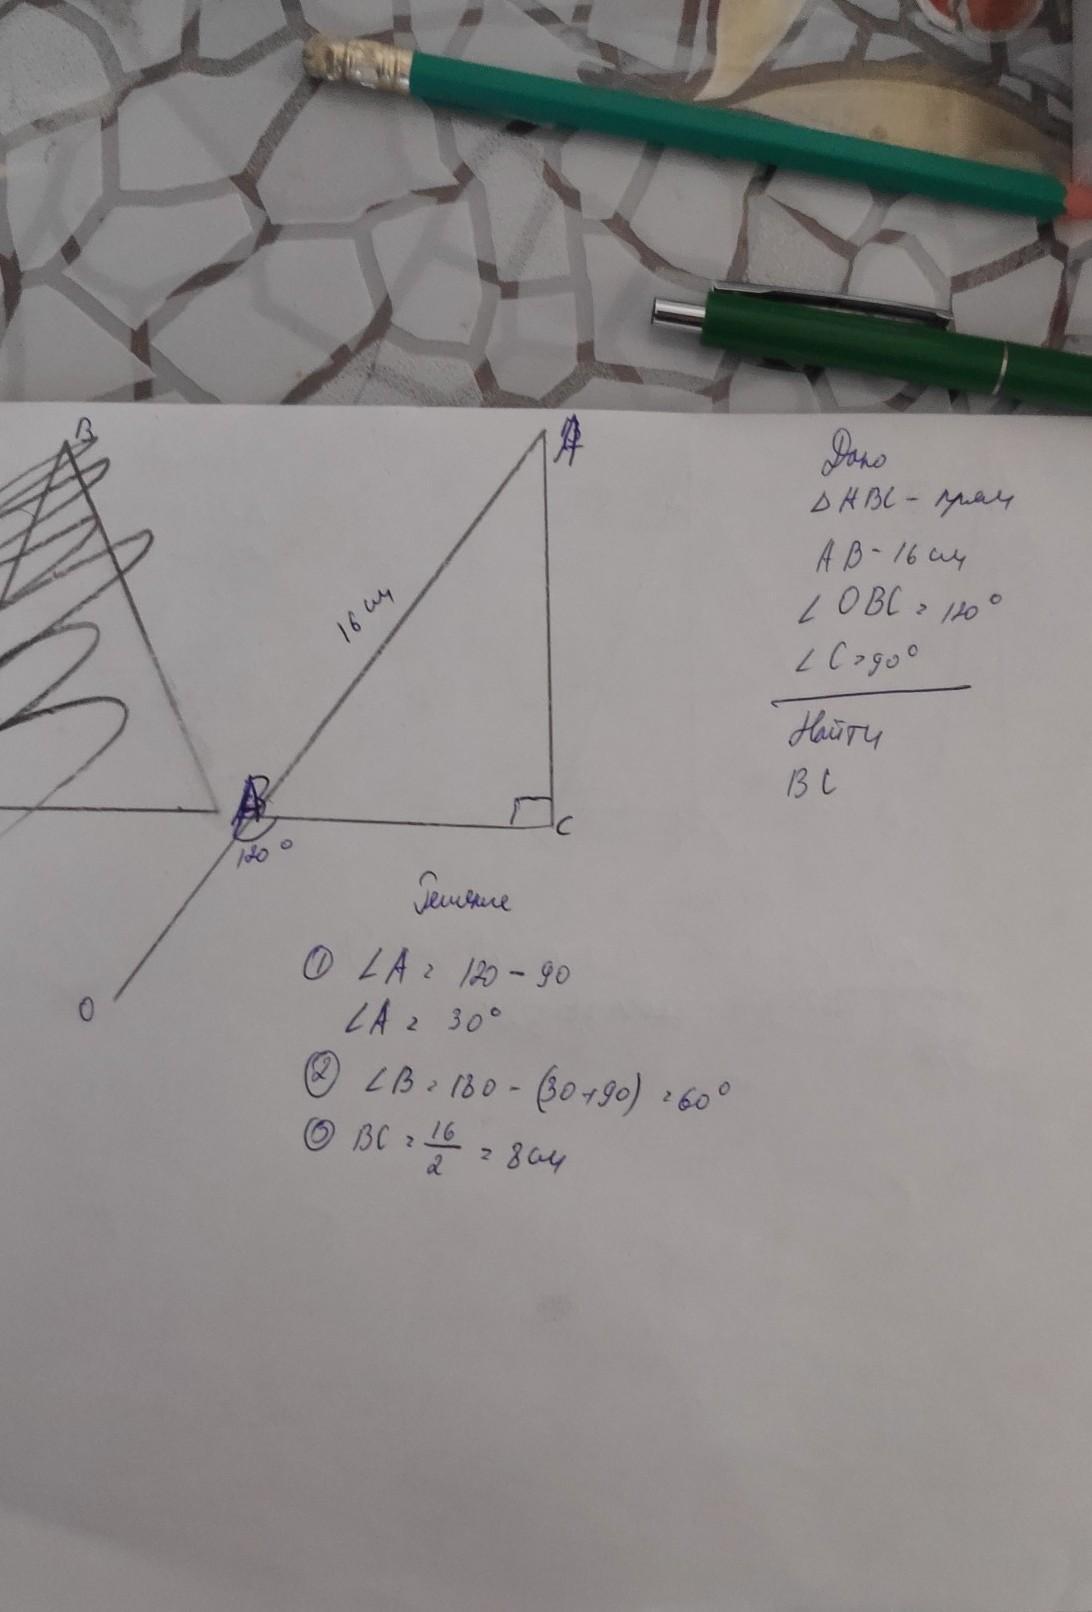 B
A
16 см
B
C
120°
O
Дано
△ABC - прям
AB - 16 см
∠OBC = 120°
∠C = 90°
Найти
BC
Решение
① ∠A = 120 - 90
∠A = 30°
② ∠B = 180 - (30+90) = 60°
③ BC = 16/2 = 8 см